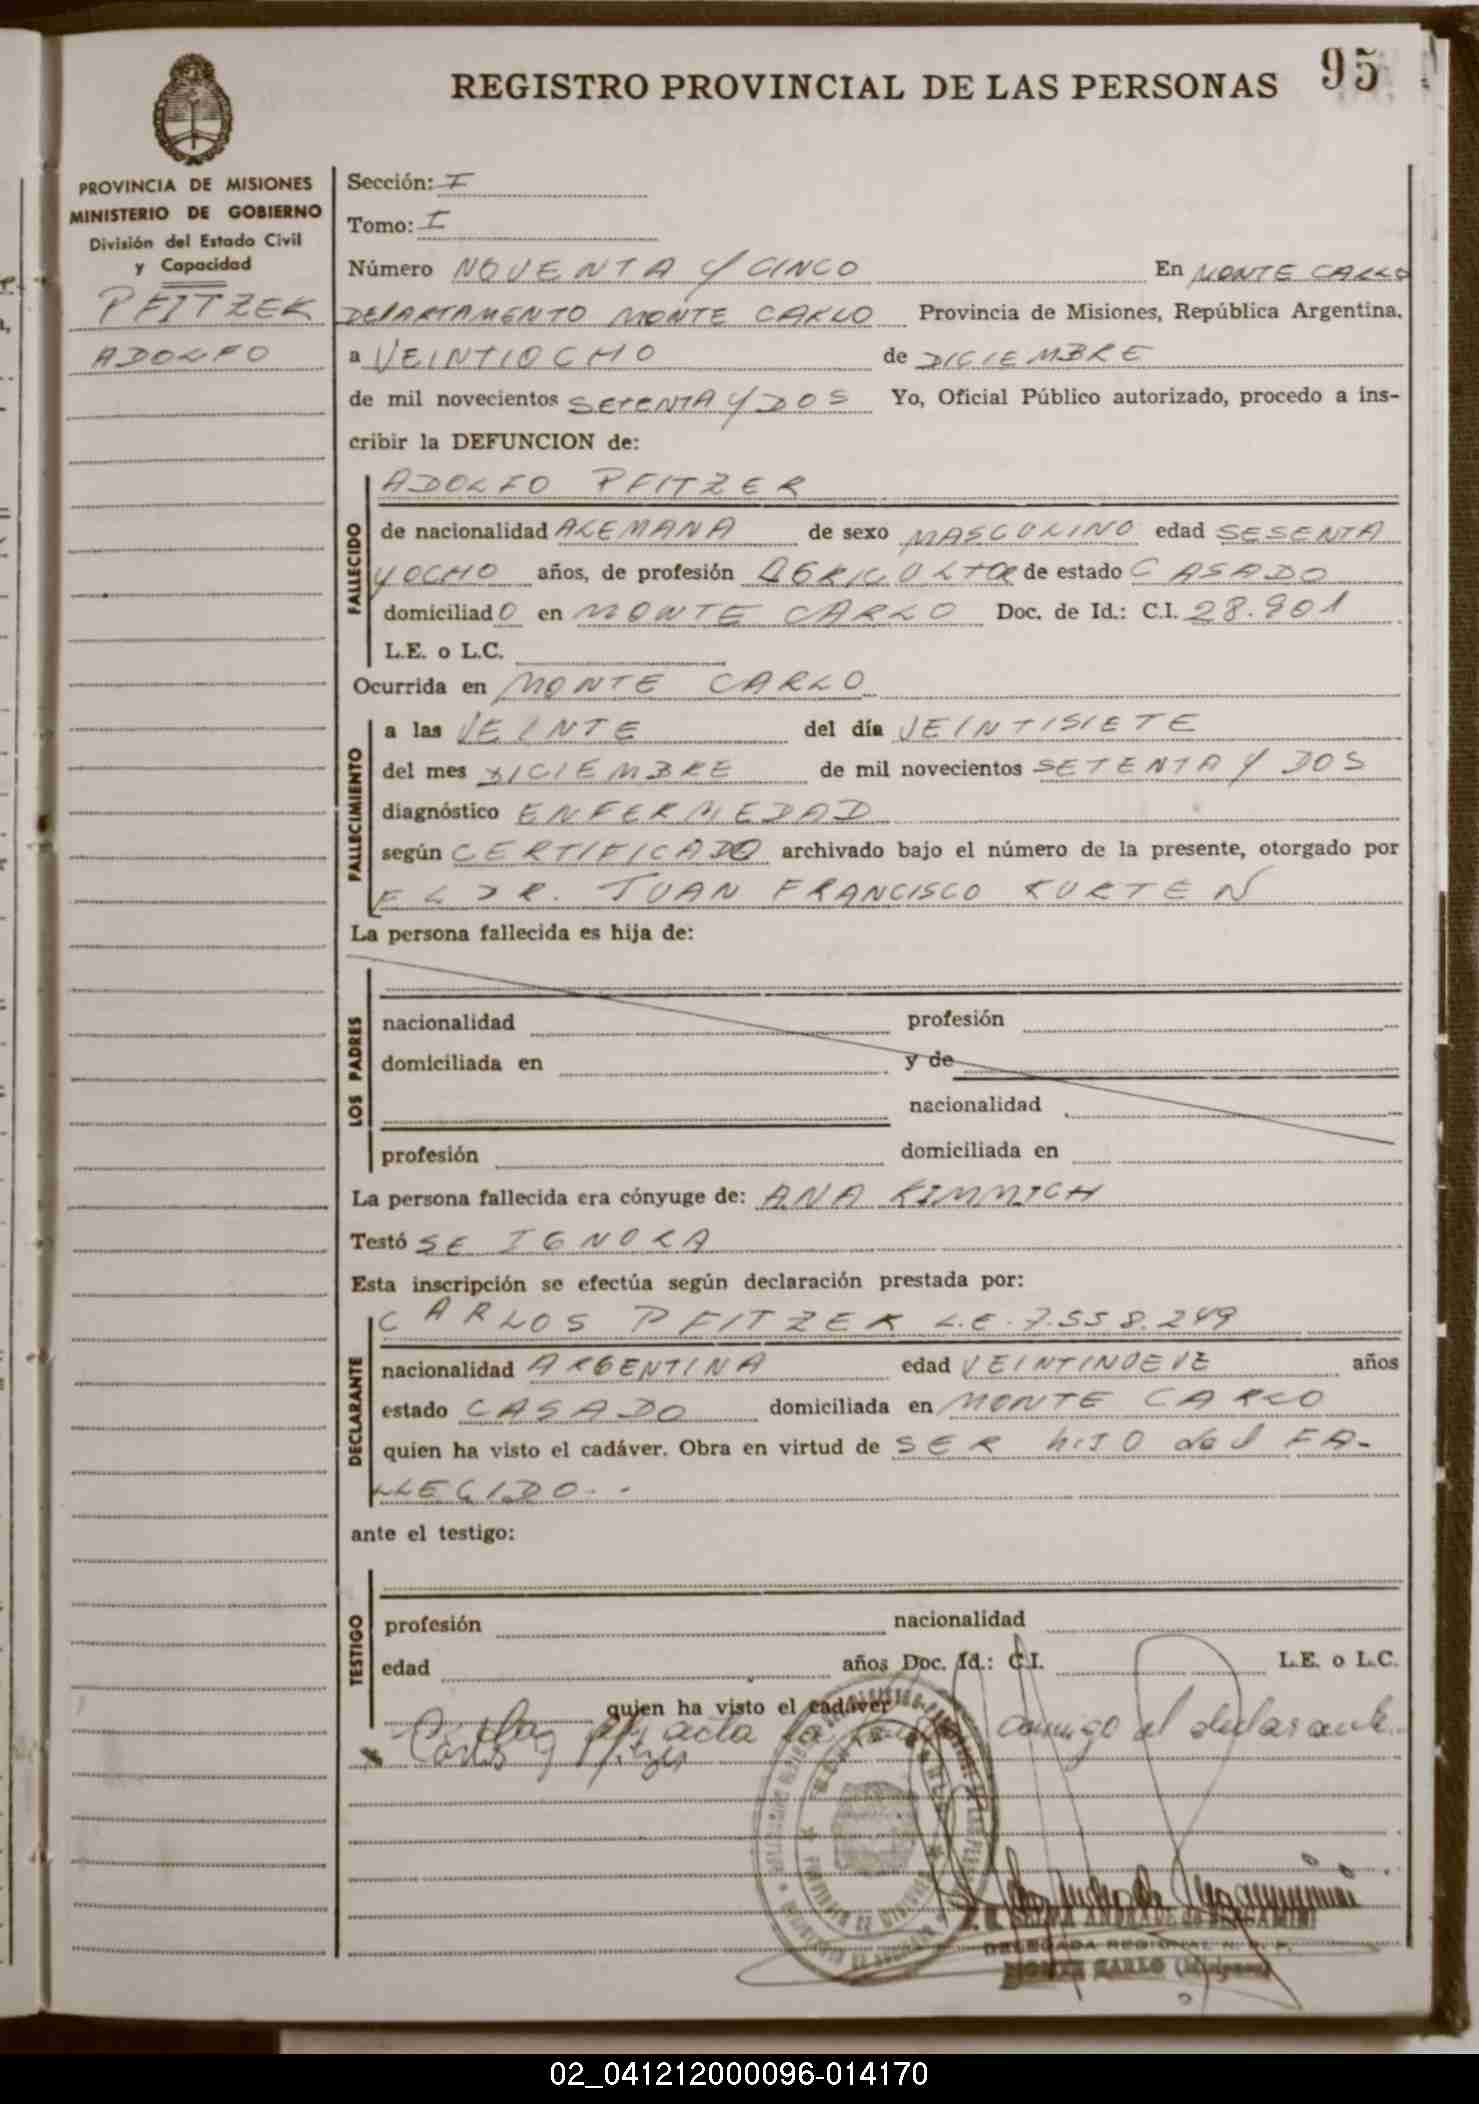 95
REGISTRO PROVINCIAL DE LAS PERSONAS
PROVINCIA DE MISIONES
MINISTERIO DE GOBIERNO
División del Estado Civil
y Capacidad
PFITZER
ADOLFO
Sección: I
Tomo: I
Número NOVENTA Y CINCO En MONTE CARLO
DEPARTAMENTO MONTE CARLO Provincia de Misiones, República Argentina,
a VEINTIOCHO de DICIEMBRE
de mil novecientos SETENTA Y DOS Yo, Oficial Público autorizado, procedo a ins-
cribir la DEFUNCION de:
FALLECIDO
ADOLFO PFITZER
de nacionalidad ALEMANA de sexo MASCULINO edad SESENTA
Y OCHO años, de profesión AGRICULTOR de estado CASADO
domiciliadO en MONTE CARLO Doc. de Id.: C.I. 28.901
L.E. o L.C.
Ocurrida en MONTE CARLO
FALLECIMIENTO
a las VEINTE del día VEINTISIETE
del mes DICIEMBRE de mil novecientos SETENTA Y DOS
diagnóstico ENFERMEDAD
según CERTIFICADO archivado bajo el número de la presente, otorgado por
EL DR. JUAN FRANCISCO KURTEN
La persona fallecida es hija de:
LOS PADRES
nacionalidad profesión
domiciliada en y de
nacionalidad
profesión domiciliada en
La persona fallecida era cónyuge de: ANA KIMMICH
Testó SE IGNORA
Esta inscripción se efectúa según declaración prestada por:
DECLARANTE
CARLOS PFITZER L.E. 7.558.249
nacionalidad ARGENTINA edad VEINTINUEVE años
estado CASADO domiciliada en MONTE CARLO
quien ha visto el cadáver. Obra en virtud de SER hIJO del FA-
LLECIDO.-
ante el testigo:
TESTIGO
profesión nacionalidad
edad años Doc. Id.: C.I. L.E. o L.C.
quien ha visto el cadáver
acta la conmigo el declarante.
Carlos Pfitzer
DELEGADA REGIONAL
MONTE CARLO (Misiones)
02_041212000096-014170